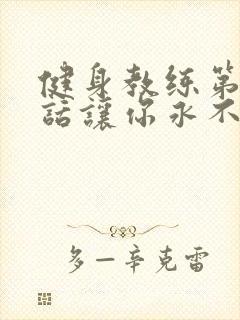 健身教练第
話讓你永不
多—辛克雷